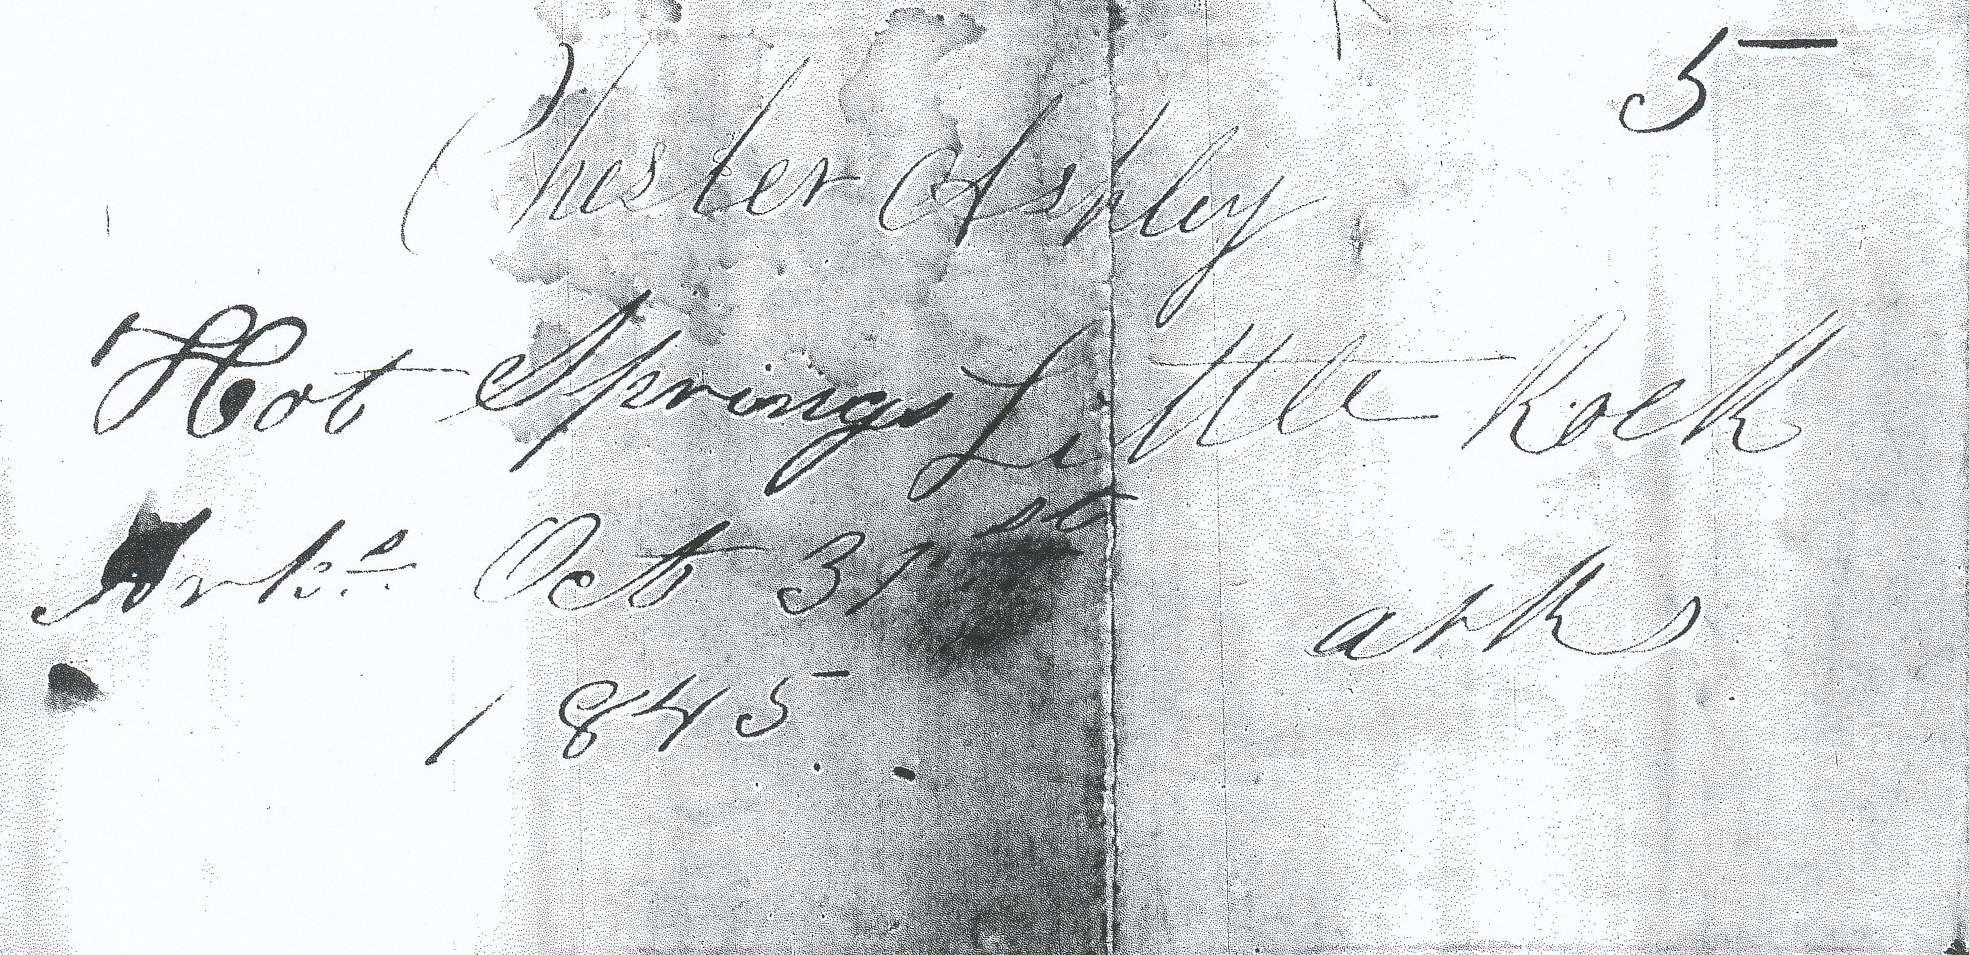 5
Chester Ashley
Hot Springs Little Rock
Arks. Oct 31st arks
1845